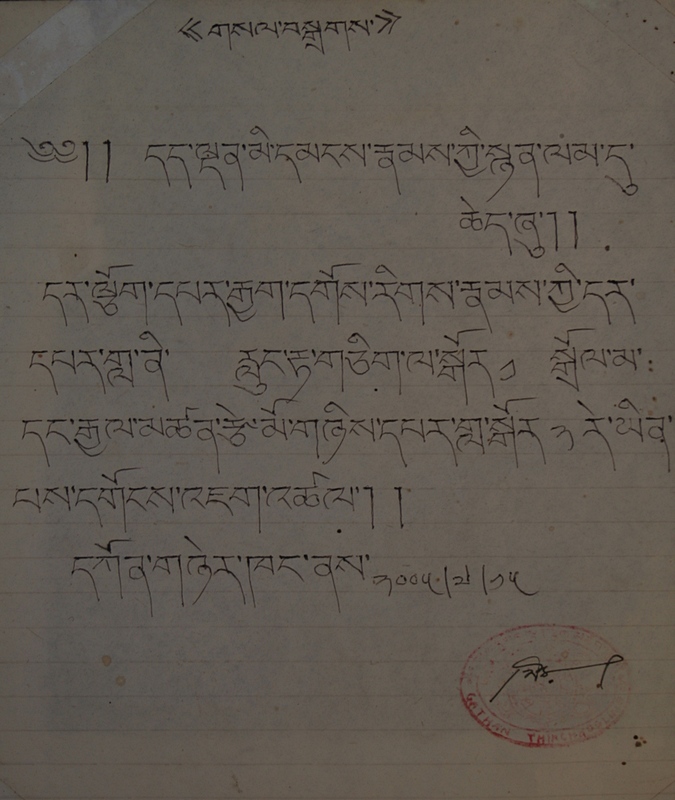 ༼གསལ་བསྒྲགས་༽
༄༅།། དད་ལྡན་མི་དམངས་རྣམས་ཀྱི་སྙན་ལམ་དུ་
ཆེད་ཞུ།།
དར་ལྕོག་དཔར་རྒྱག་དགོས་རིགས་རྣམས་ཀྱི་དར་
དཔར་གླ་ནི་ རླུང་རྟ་གཅིག་ལ་སྒོར་ ༡ སྒྲོལ་མ་
དང་རྒྱལ་མཚན་རྩེ་མོ་གཉིས་དཔར་གླ་སྒོར་ ༢ རེ་ཡིན་
པས་དགོངས་འཇག་འཚལ། །
དཀོན་གཉེར་ཁང་ནས་ ༢༠༠༥།༢།༡༥
THIKSEY